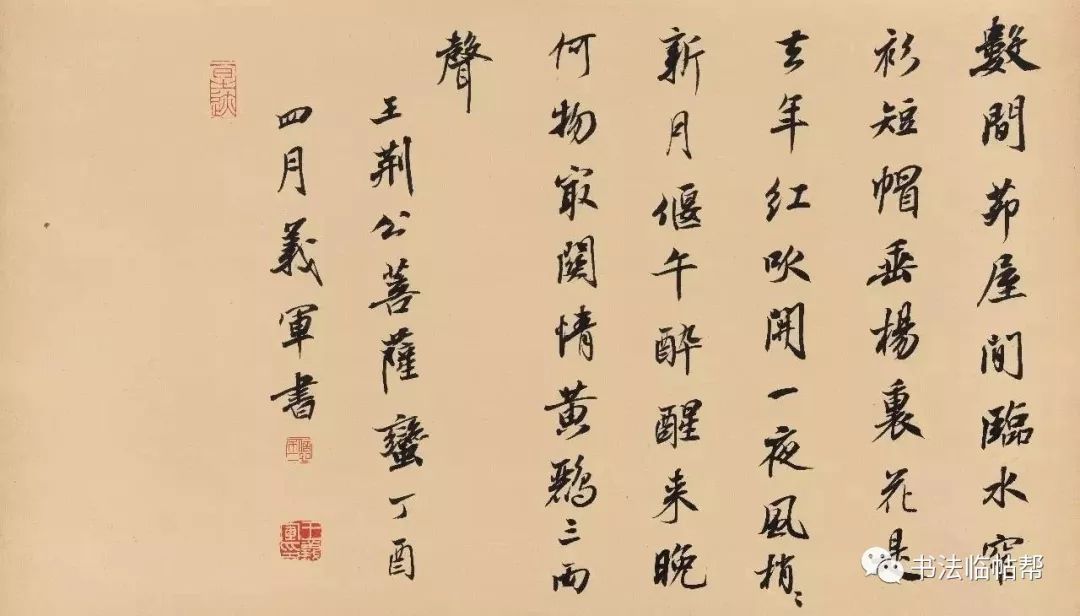 數間茆屋閒臨水窄
衫短帽垂楊裏花是
去年紅吹開一夜風梢〻
新月偃午醉醒來晚
何物㝡關情黃鸝三兩
聲
王荊公菩薩蠻丁酉
四月義軍書
书法临帖帮